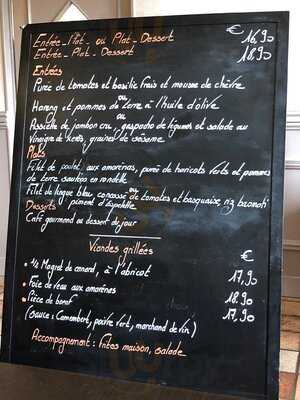 €
Entrée_Plat_ ou Plat_Dessert 16,90
Entrée_Plat_Dessert 18,90
Entrées
Purée de tomates et basilic frais et mousse de chèvre
ou
Hareng et pommes de terre à l'huile d'olive
ou
Assiette de jambon cru, gaspacho de légumes et salade au
Vinaigre de Xérès, graines de sésame
Plats
Filet de poulet aux amarenas, purée de haricots verts et pommes
de terre sautées en rondelle
ou
Filet de lingue bleu concassé de tomates et basquaise, riz basmati
Desserts piment d'espelette
Café gourmand ou dessert du jour
Viandes grillées
€
• 1/2 Magret de canard, à l'abricot 17,90
• Foie de veau aux amarenas 18.90
• Pièce de boeuf 17,90
(sauce : Camembert, poivre vert, marchand de vin)
Accompagnement : Frites maison, salade